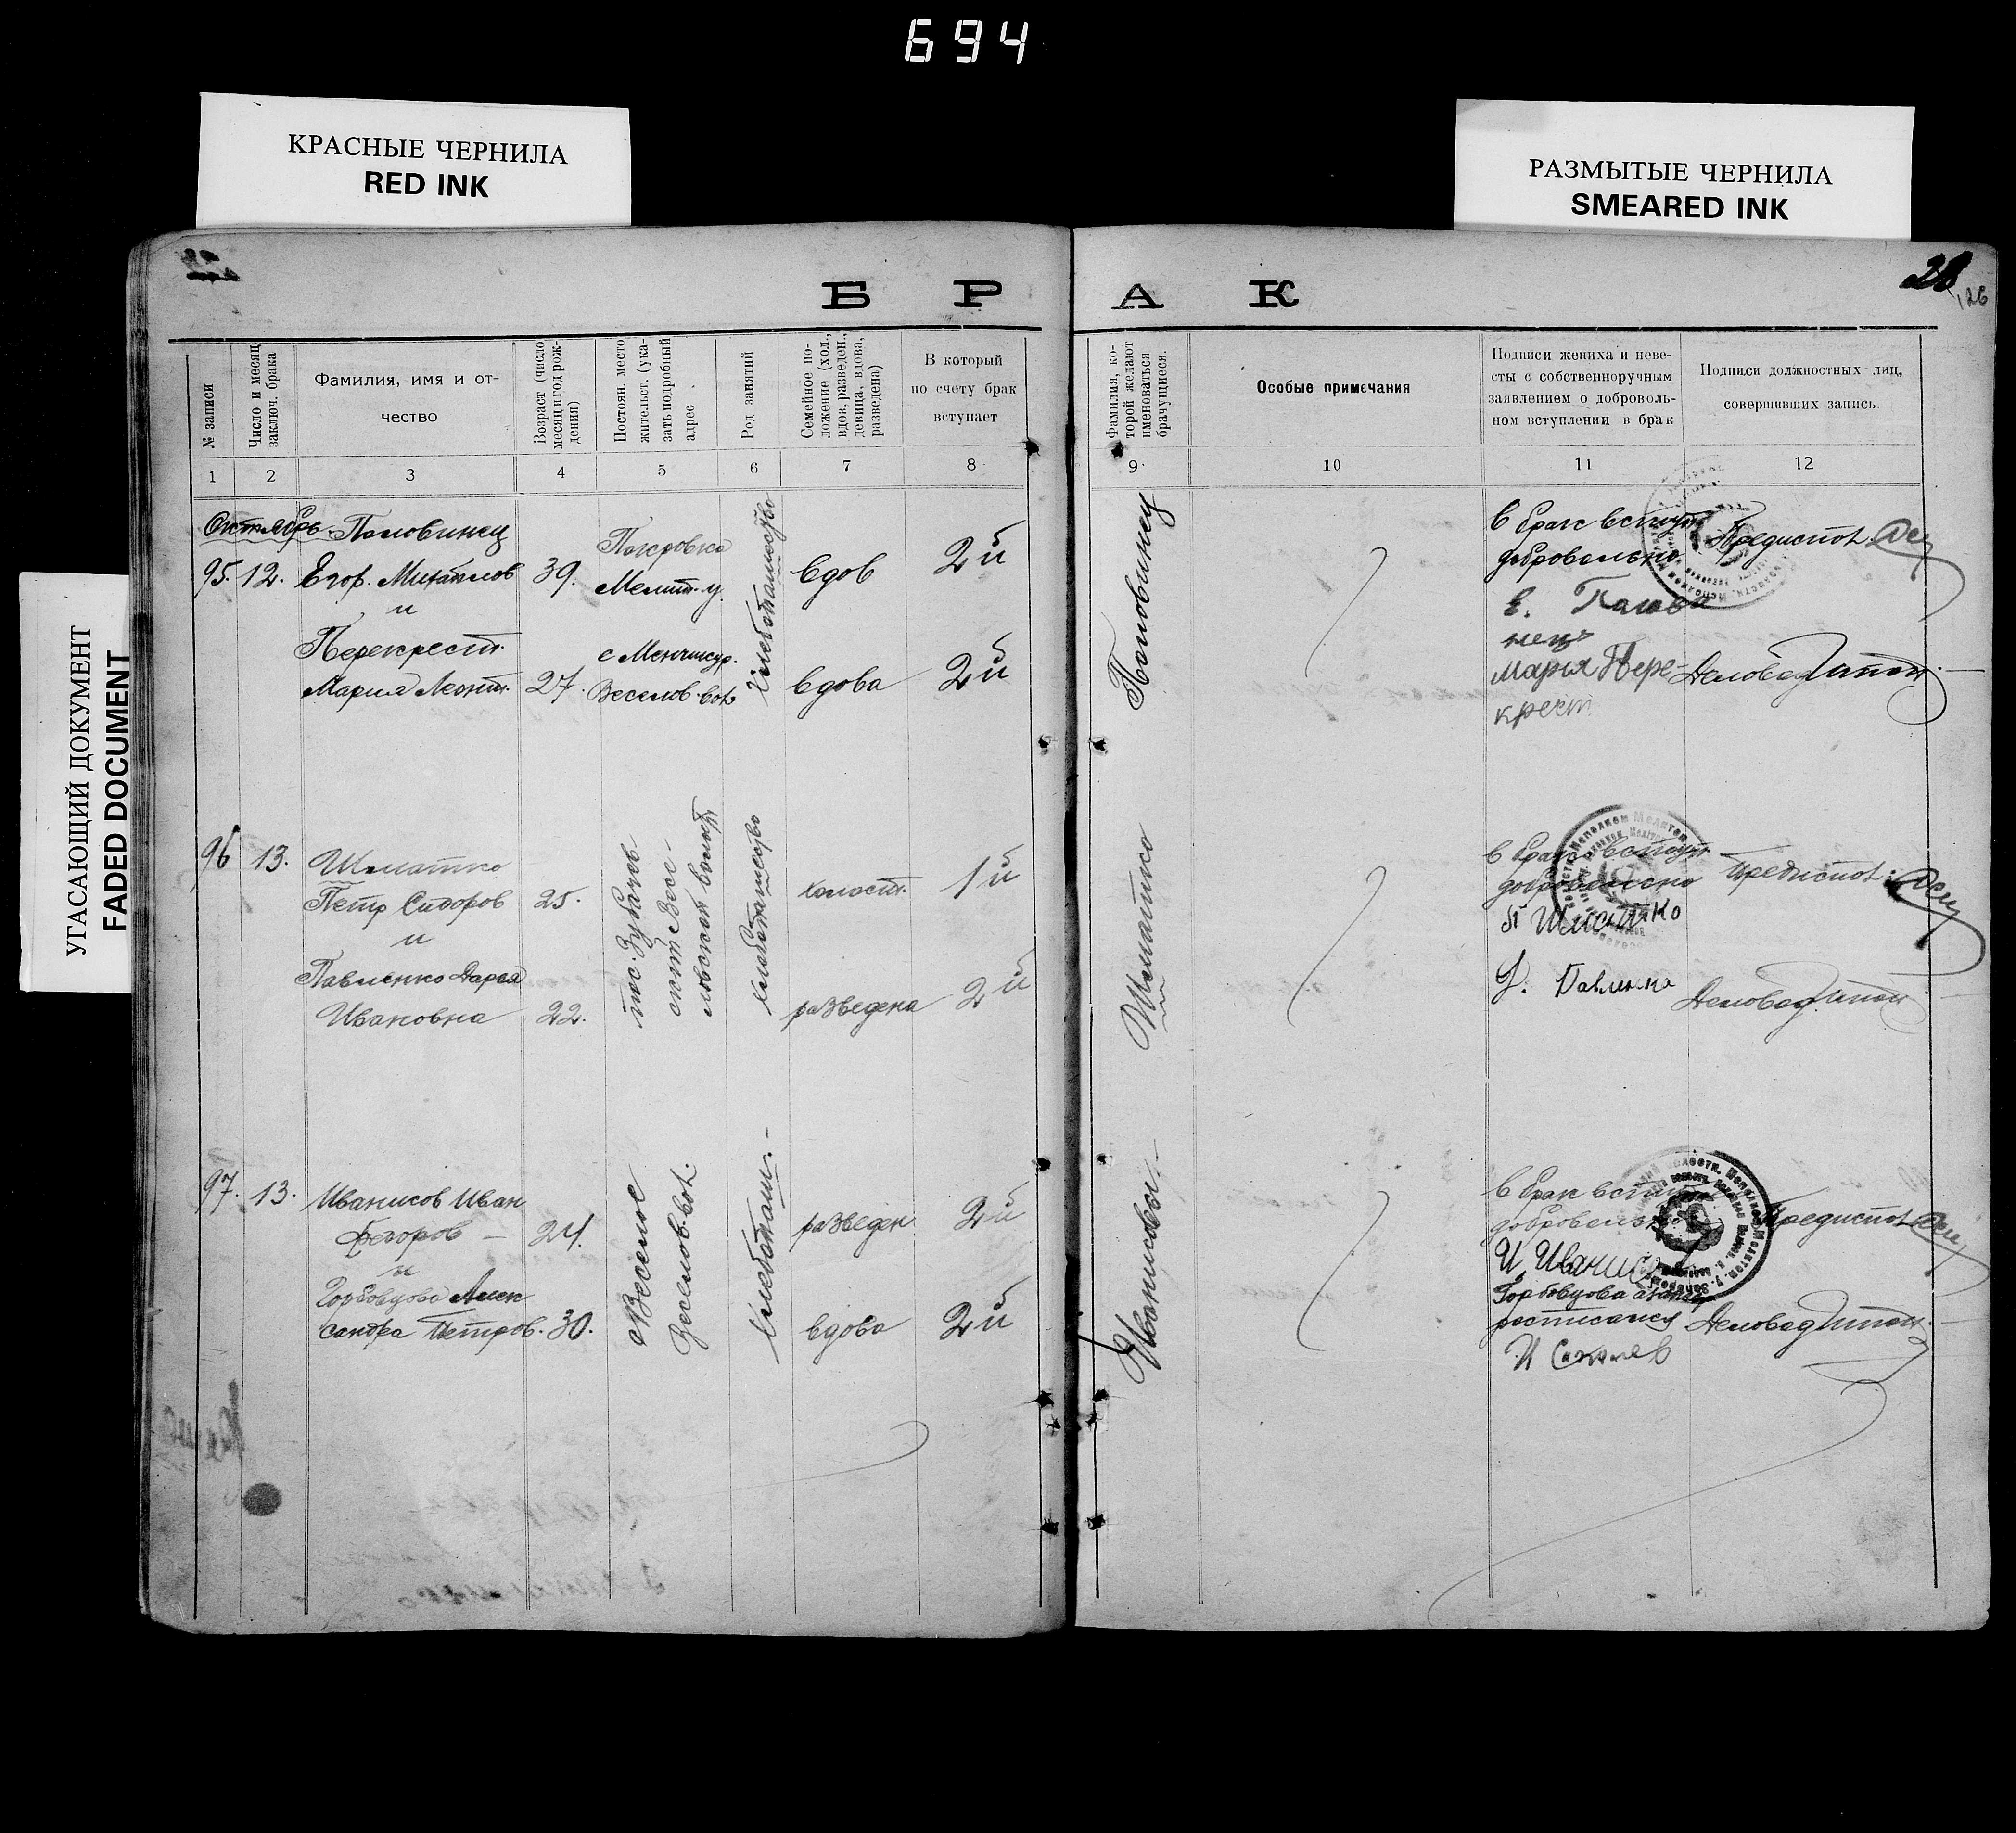 694
КРАСНЫЕ ЧЕРНИЛА
RED INK
РАЗМЫТЫЕ ЧЕРНИЛА
SMEARED INK
УГАСАЮЩИЙ ДОКУМЕНТ
FADED DOCUMENT
28
126
Б Р А К
№ записи
Число и месяц
заключ. брака
Фамилия, имя и от-
чество
Возраст (число
месяц и год рож-
дения)
Постоян. место
жительст. (ука-
зать подробный
адрес
Род занятий
Семейное по-
ложение (хол.,
вдов, разведен.,
девица, вдова,
разведена)
В который
по счету брак
вступает
Фамилия, ко-
торой желают
именоваться
брачущиеся.
Особые примечания
Подписи жениха и неве-
сты с собственноручным
заявлением о доброволь-
ном вступлении в брак
Подписи должностных лиц,
совершивших запись.
1 2 3 4 5 6 7 8 9 10 11 12
Октябрь
Половинец
95. 12. Егор. Михайлов 39.
и
Перекрест.
Мария Леонт. 27.
Покровка
Мелит. у.
с Менчикур.
Веселов. вол.
Хлебопашество
вдов 2й
вдова 2й
Половинец
в брак вступ.
добровольно
марья Пере-
крест
Предиспол.
Деловод
96 13. Шматко
Петр Сидоров 25.
и
Павленко Дарья
Ивановна 22.
пос. Зубачев
ской волости
хлебопашество
холост. 1й
разведена 2й
Шматко
в брак вступ.
добровольно
П Шматко
Предиспол.
Деловод
97. 13. Иванисов Иван
Федоров — 24.
и
Горбовцова Алек
сандра Петров. 30.
с Веселое
Веселов. вол.
Хлебопаш.
разведен 2й
вдова 2й
Иванисовы
в брак вступ
добровольно
И Иванисов
Горбовцова
Предиспол
Деловод